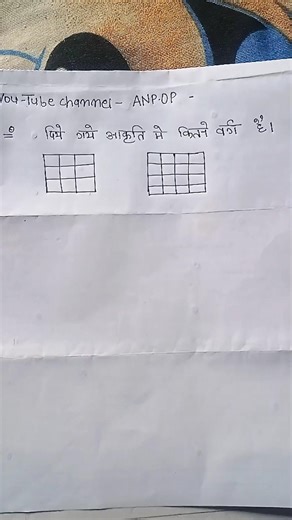 You-Tube channel - ANP.OP -
Q दिये गये आकृति मे कितने वर्ग हैं।